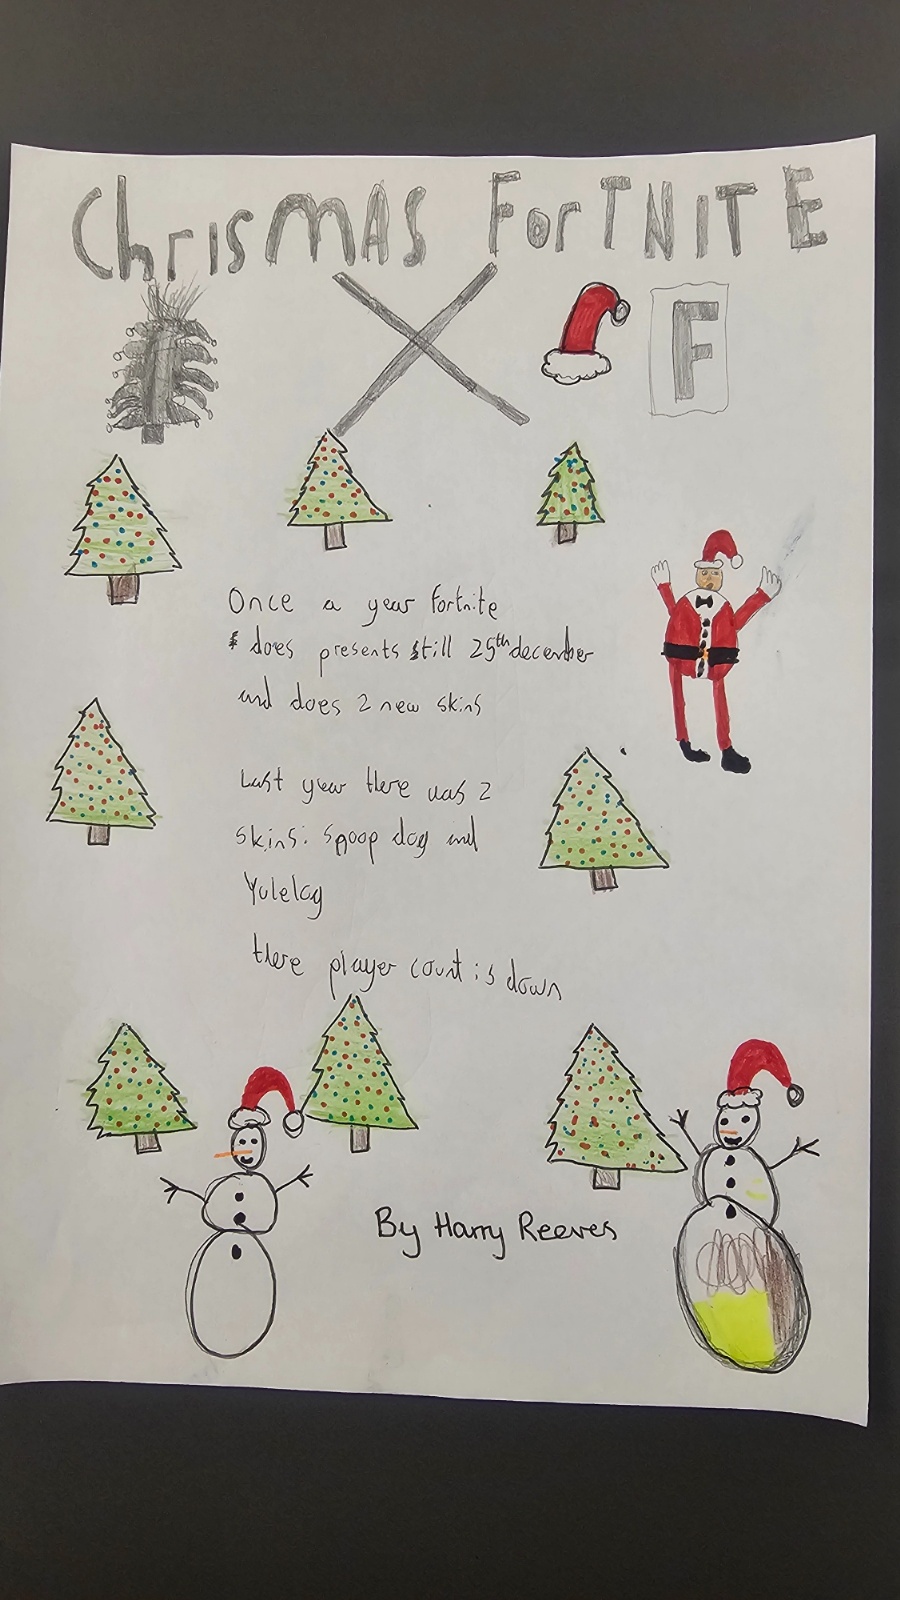 Chrismas Fortnite
X
F
Once a year fortnite
does presents still 25th december
and does 2 new skins
Last year there was 2
skins: snoop dog and
Yulelog
there player count is down
By Harry Reeves